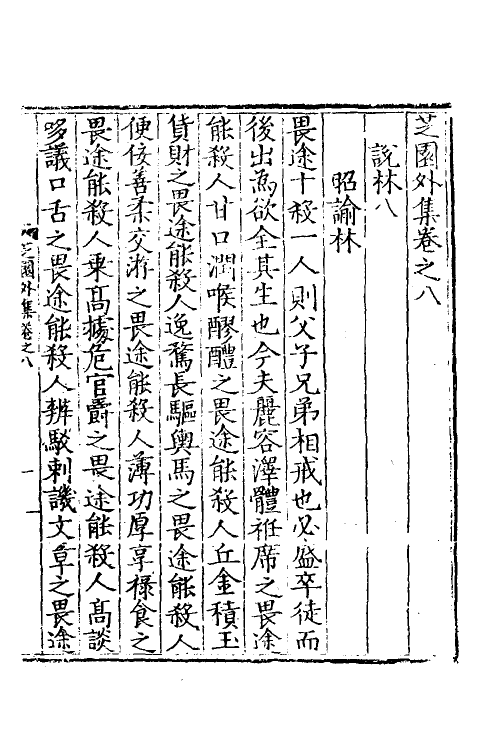 芝園外集卷之八
說林八
昭諭林
畏途十殺一人則父子兄弟相戒也必盛卒徒而
後出焉欲全其生也今夫麗容澤體袵席之畏途
能殺人甘口潤喉醪醴之畏途能殺人丘金積玉
貨財之畏途能殺人逸騖長驅輿馬之畏途能殺人
便佞善柔交游之畏途能殺人薄功厚享祿食之
畏途能殺人乘髙據危官爵之畏途能殺人髙談
哆議口舌之畏途能殺人辨駁刺譏文章之畏途
芝園外集卷之八
一